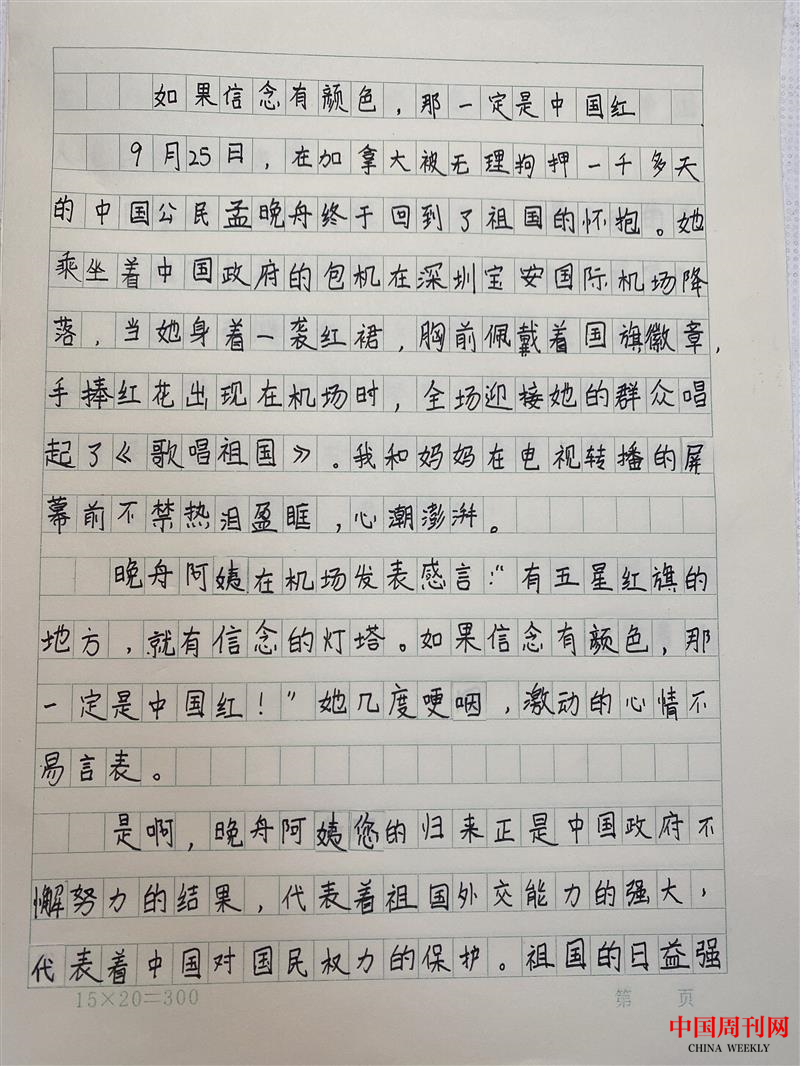 如果信念有颜色，那一定是中国红
9月25日，在加拿大被无理拘押一千多天
的中国公民孟晚舟终于回到了祖国的怀抱。她
乘坐着中国政府的包机在深圳宝安国际机场降
落，当她身着一袭红裙，胸前佩戴着国旗徽章，
手捧红花出现在机场时，全场迎接她的群众唱
起了《歌唱祖国》。我和妈妈在电视转播的屏
幕前不禁热泪盈眶，心潮澎湃。
晚舟阿姨在机场发表感言：“有五星红旗的
地方，就有信念的灯塔。如果信念有颜色，那
一定是中国红！”她几度哽咽，激动的心情不
易言表。
是啊，晚舟阿姨您的归来正是中国政府不
懈努力的结果，代表着祖国外交能力的强大，
代表着中国对国民权力的保护。祖国的日益强
15×20=300
第 页
中国周刊网
CHINA WEEKLY